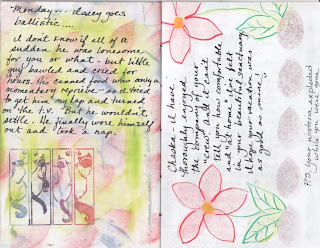 Monday... Casey goes
ballistic....
I don't know if all of a
sudden he was lonesome
for you or what - but little
guy bawled and cried for
hours. His canned food was only a
momentary reprieve - so I tried
to get him my lap and turned
on the TV. But he wouldn't
settle - He finally wore himself
out and took a nap.
Chaska - I have
thoroughly enjoyed
the company of your
"crew" and I can't
tell you how comfortable
and "at home" I felt
in your beautiful sanctuary
I hope your vacation was
as good as mine!
P.S. Your wisteria exploded
while you were gone